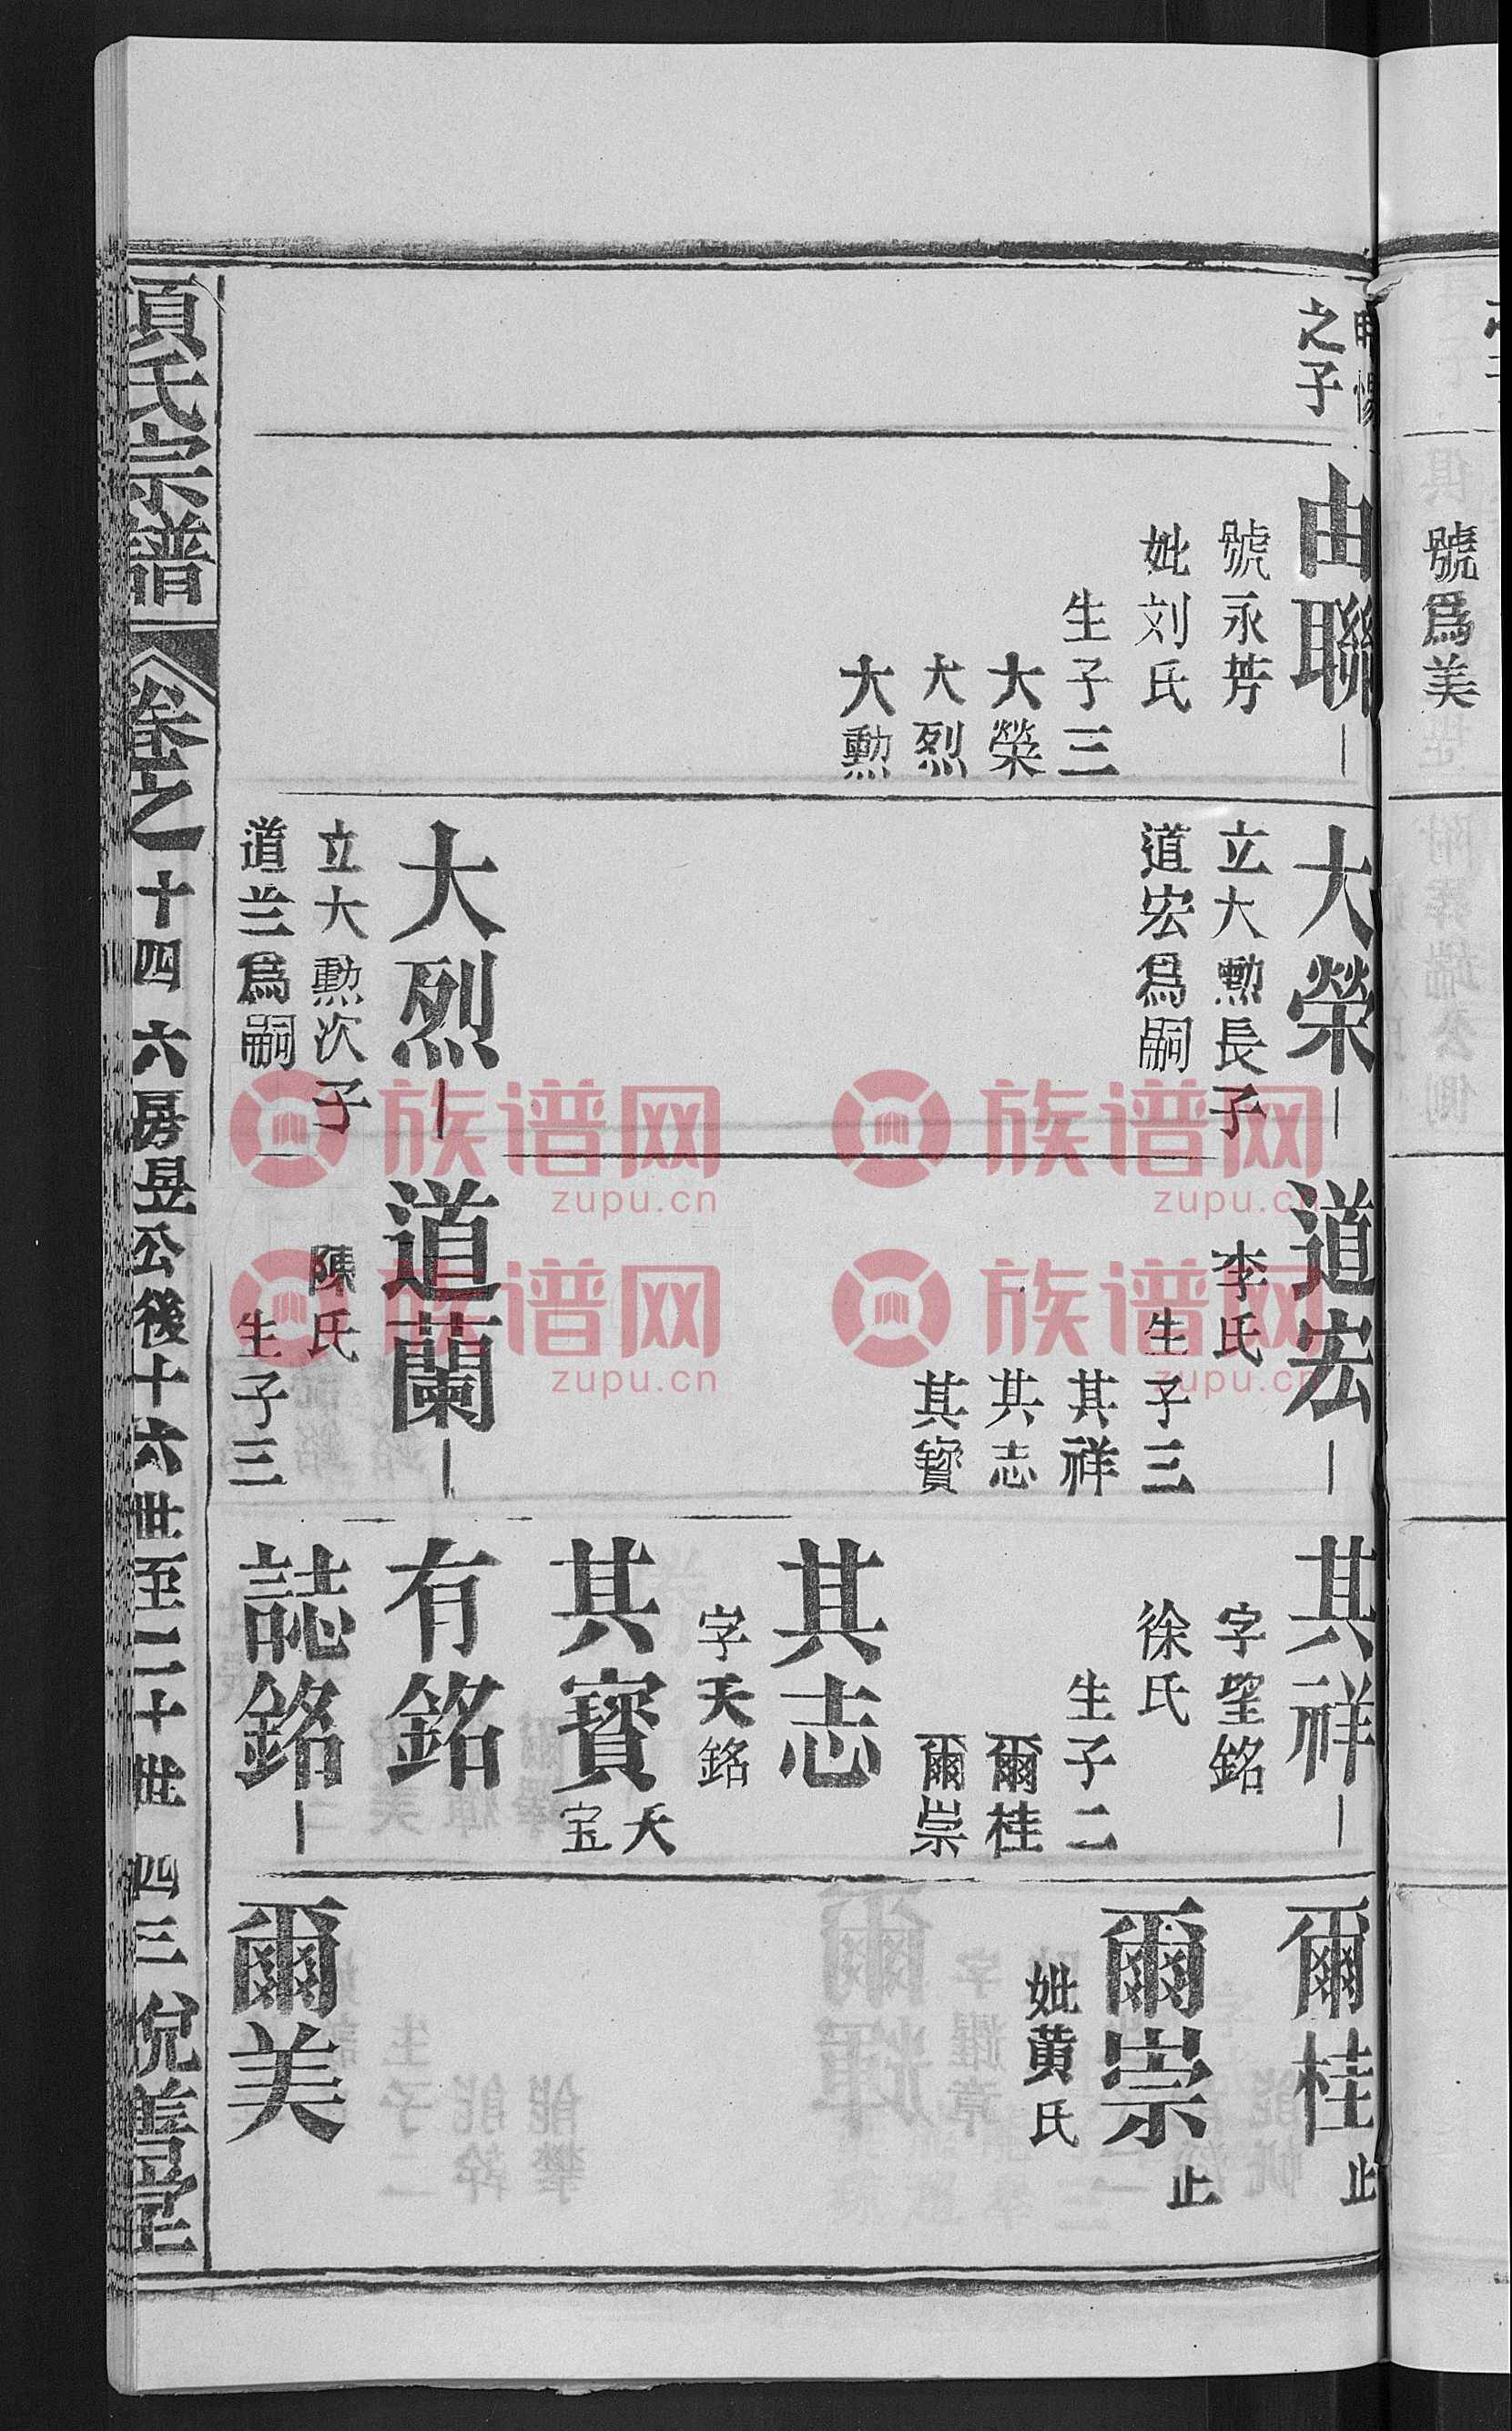 之子
由聯
號永芳
妣刘氏
生子三
大榮
大烈
大勲
大榮
立大勲長子
道宏爲嗣
大烈
立大勲次子
道兰爲嗣
道宏
李氏
生子三
其祥
其志
其寳
道蘭
陳氏
生子三
其祥
字望銘
徐氏
生子二
爾桂
爾崇
其志
字天銘
其寳
天
宝
有銘
誌銘
爾桂
止
爾崇
止
妣黄氏
爾美
項氏宗譜
卷之十四 六房昱公後十六世至二十世 四三
善堂
號爲美
族谱网
zupu.cn
族谱网
zupu.cn
族谱网
zupu.cn
族谱网
zupu.cn